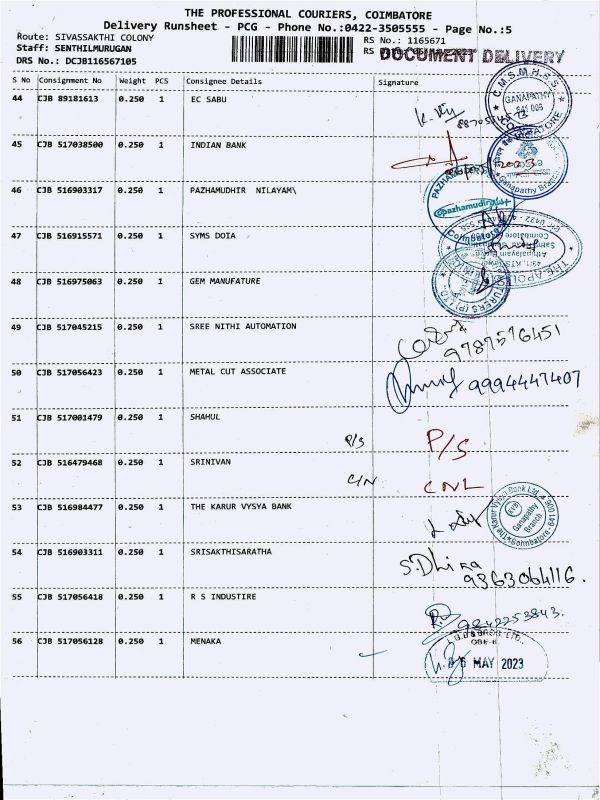 THE PROFESSIONAL COURIERS, COIMBATORE
Delivery Runsheet - PCG - Phone No.:0422-3505555 - Page No.:5
Route: SIVASSAKTHI COLONY
RS No.: 1165671
Staff: SENTHILMURUGAN
RS
DOCUMENT DELIVERY
DRS No.: DCJB116567105
S No Consignment No Weight PCS Consignee Details Signature
44 CJB 89181613 0.250 1 EC SABU
C.M.S.M.H.S.S.
GANAPATHY
641 006
COIMBATORE
45 CJB 517038500 0.250 1 INDIAN BANK
Ganapathy Branch
46 CJB 516903317 0.250 1 PAZHAMUDHIR NILAYAM\
Coimbatore
47 CJB 516915571 0.250 1 SYMS DOIA
48 CJB 516975063 0.250 1 GEM MANUFATURE
49 CJB 517045215 0.250 1 SREE NITHI AUTOMATION
9787576451
50 CJB 517056423 0.250 1 METAL CUT ASSOCIATE
9994447407
51 CJB 517001479 0.250 1 SHAHUL
P/S P/S
52 CJB 516479468 0.250 1 SRINIVAN
C/N CNL
53 CJB 516984477 0.250 1 THE KARUR VYSYA BANK
The Karur Vysya Bank Ltd.
KVB
Ganapathy
Branch
Coimbatore - 641 006
54 CJB 516903311 0.250 1 SRISAKTHISARATHA
S.Dhira
9363064116.
55 CJB 517056418 0.250 1 R S INDUSTIRE
9842253843.
56 CJB 517056128 0.250 1 MENAKA
MAY 2023